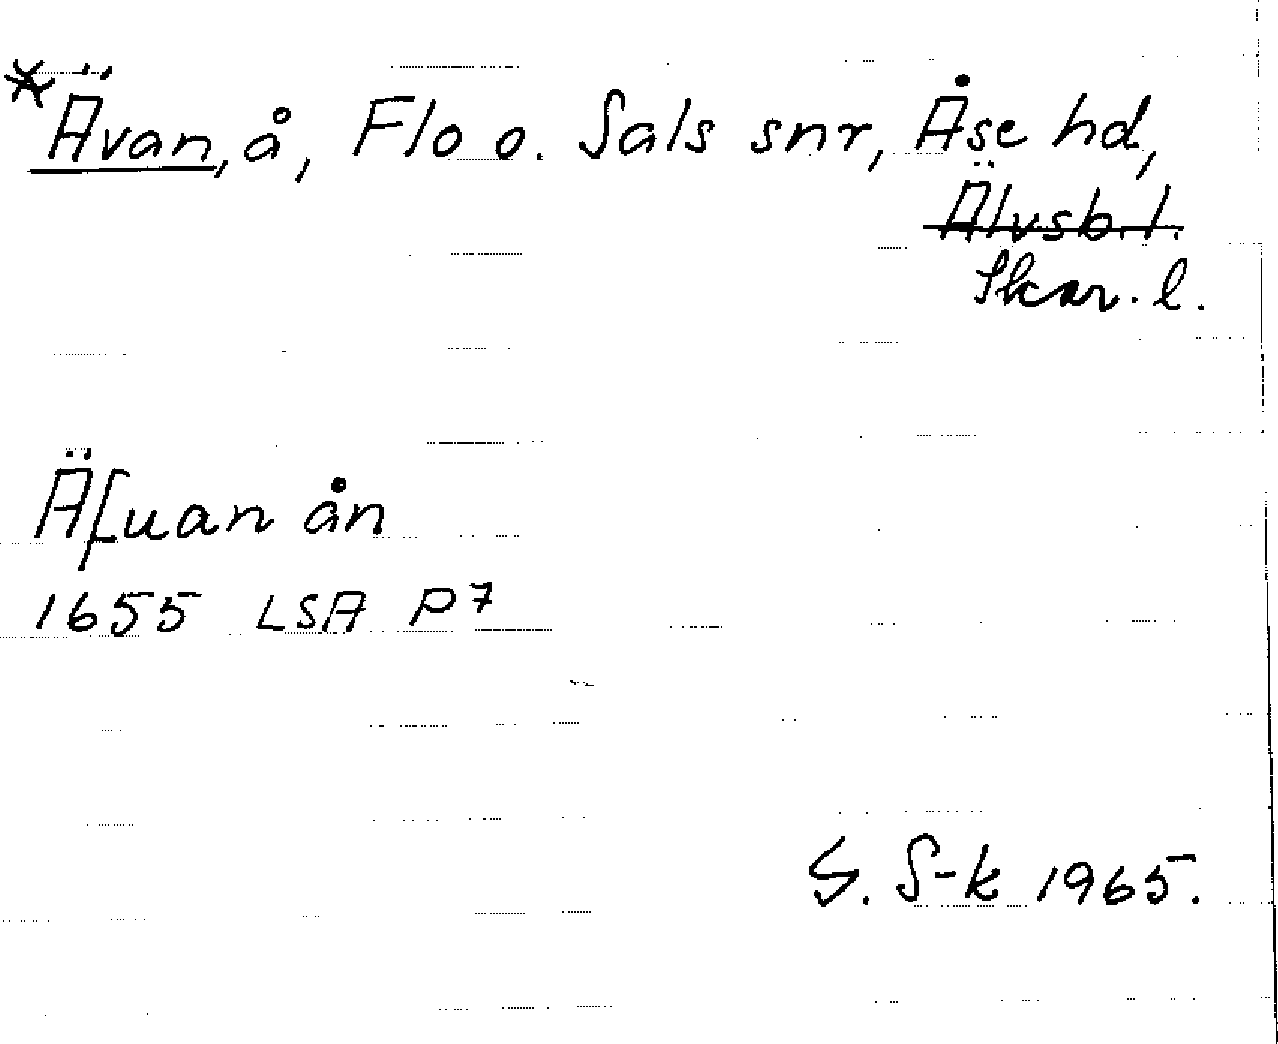 *Ävan, å, Flo o. Sals snr, Åse hd,
Älvsb. l.
Skar. l.
Äfuan ån
1655 LSA P7
S. S-k 1965.